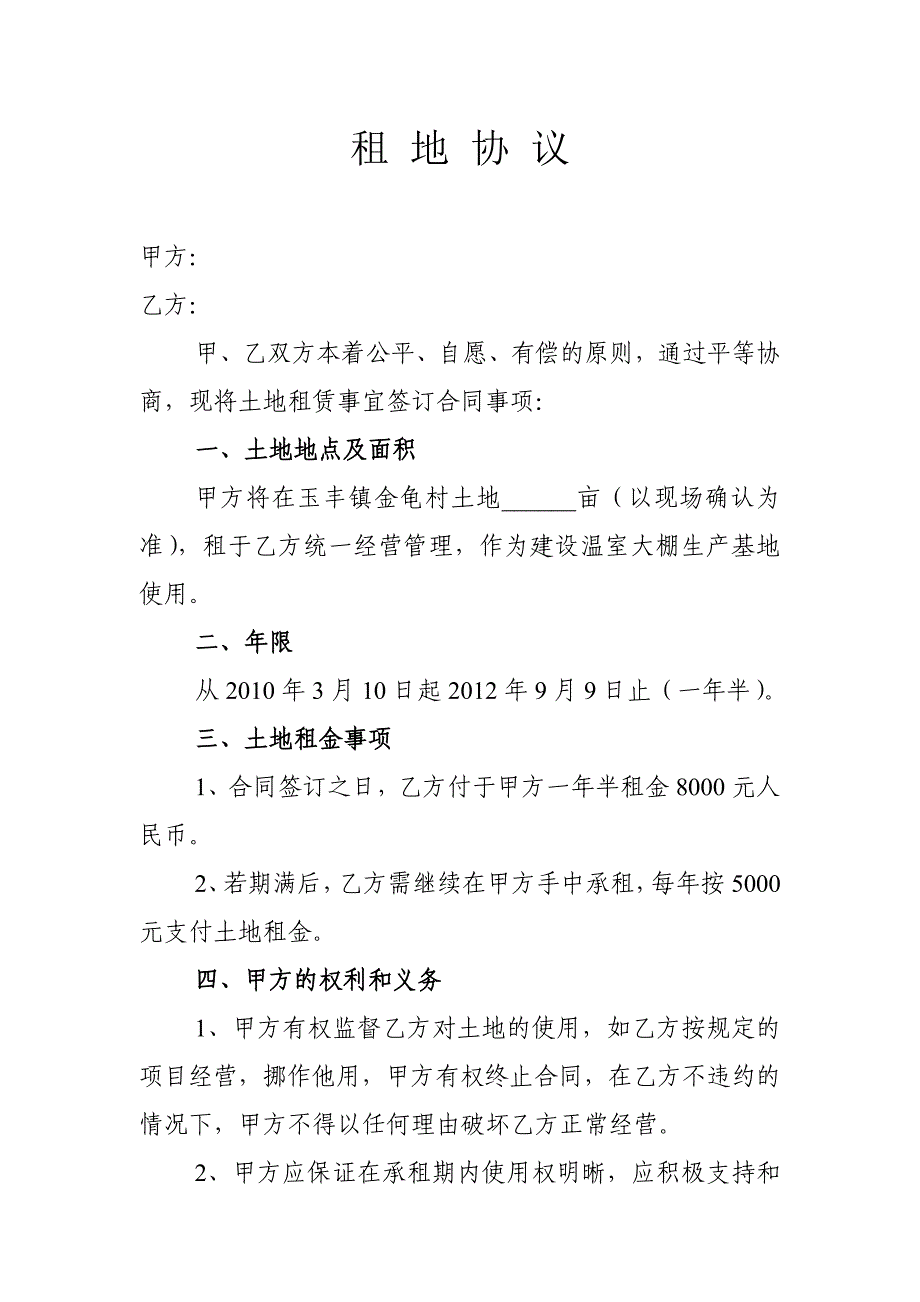 租 地 协 议
甲方：
乙方：
甲、乙双方本着公平、自愿、有偿的原则，通过平等协
商，现将土地租赁事宜签订合同事项：
一、土地地点及面积
甲方将在玉丰镇金龟村土地______亩（以现场确认为
准），租于乙方统一经营管理，作为建设温室大棚生产基地
使用。
二、年限
从 2010 年 3 月 10 日起 2012 年 9 月 9 日止（一年半）。
三、土地租金事项
1、合同签订之日，乙方付于甲方一年半租金 8000 元人
民币。
2、若期满后，乙方需继续在甲方手中承租，每年按 5000
元支付土地租金。
四、甲方的权利和义务
1、甲方有权监督乙方对土地的使用，如乙方按规定的
项目经营，挪作他用，甲方有权终止合同，在乙方不违约的
情况下，甲方不得以任何理由破坏乙方正常经营。
2、甲方应保证在承租期内使用权明晰，应积极支持和